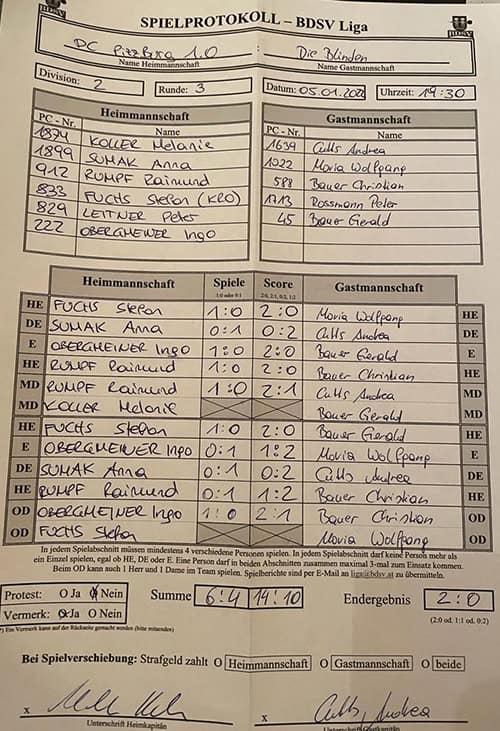 BDSV
SPIELPROTOKOLL – BDSV Liga
DC Pizzburg 1.0 : Die Blinden
Name Heimmannschaft Name Gastmannschaft
Division: 2 Runde: 3 Datum: 05.01.202 Uhrzeit: 19:30
Heimmannschaft Gastmannschaft
PC - Nr. Name PC - Nr. Name
1894 KOLLER Melanie 1639 Cutts Andrea
1899 SUMAK Anna 1022 Moria Wolfgang
912 RUMPF Raimund 588 Bauer Christian
833 FUCHS Stefan (KRO) 1713 Rossmann Peter
829 LEITNER Peter 45 Bauer Gerald
222 OBERGMEINER Ingo
Heimmannschaft Spiele Score Gastmannschaft
1:0 oder 0:1 2:0, 2:1, 0:2, 1:2
HE FUCHS Stefan 1:0 2:0 Moria Wolfgang HE
DE SUMAK Anna 0:1 0:2 Cutts Andrea DE
E OBERGMEINER Ingo 1:0 2:0 Bauer Gerald E
HE RUMPF Raimund 1:0 2:0 Bauer Christian HE
MD RUMPF Raimund 1:0 2:1 Cutts Andrea MD
MD KOLLER Melanie Bauer Gerald MD
HE FUCHS Stefan 1:0 2:0 Bauer Gerald HE
E OBERGMEINER Ingo 0:1 1:2 Moria Wolfgang E
DE SUMAK Anna 0:1 0:2 Cutts Andrea DE
HE RUMPF Raimund 0:1 1:2 Bauer Christian HE
OD OBERGMEINER Ingo 1:0 2:1 Bauer Christian OD
OD FUCHS Stefan Moria Wolfgang OD
In jedem Spielabschnitt müssen mindestens 4 verschiedene Personen spielen. In jedem Spielabschnitt darf keine Person mehr als
ein Einzel spielen, egal ob HE, DE oder E. Eine Person darf in beiden Abschnitten zusammen maximal 3-mal zum Einsatz kommen.
Beim OD kann auch 1 Herr und 1 Dame im Team spielen. Spielberichte sind per E-Mail an liga@bdsv.at zu übermitteln.
Protest: O Ja O Nein Summe 6:4 14:10 Endergebnis 2:0
Vermerk: O Ja O Nein (2:0 od. 1:1 od. 0:2)
*) Ein Vermerk kann auf der Rückseite gemacht werden (bitte mitsenden)
Bei Spielverschiebung: Strafgeld zahlt O Heimmannschaft O Gastmannschaft O beide
x x Cutts Andrea
Unterschrift Heimkapitän Unterschrift Gastkapitän